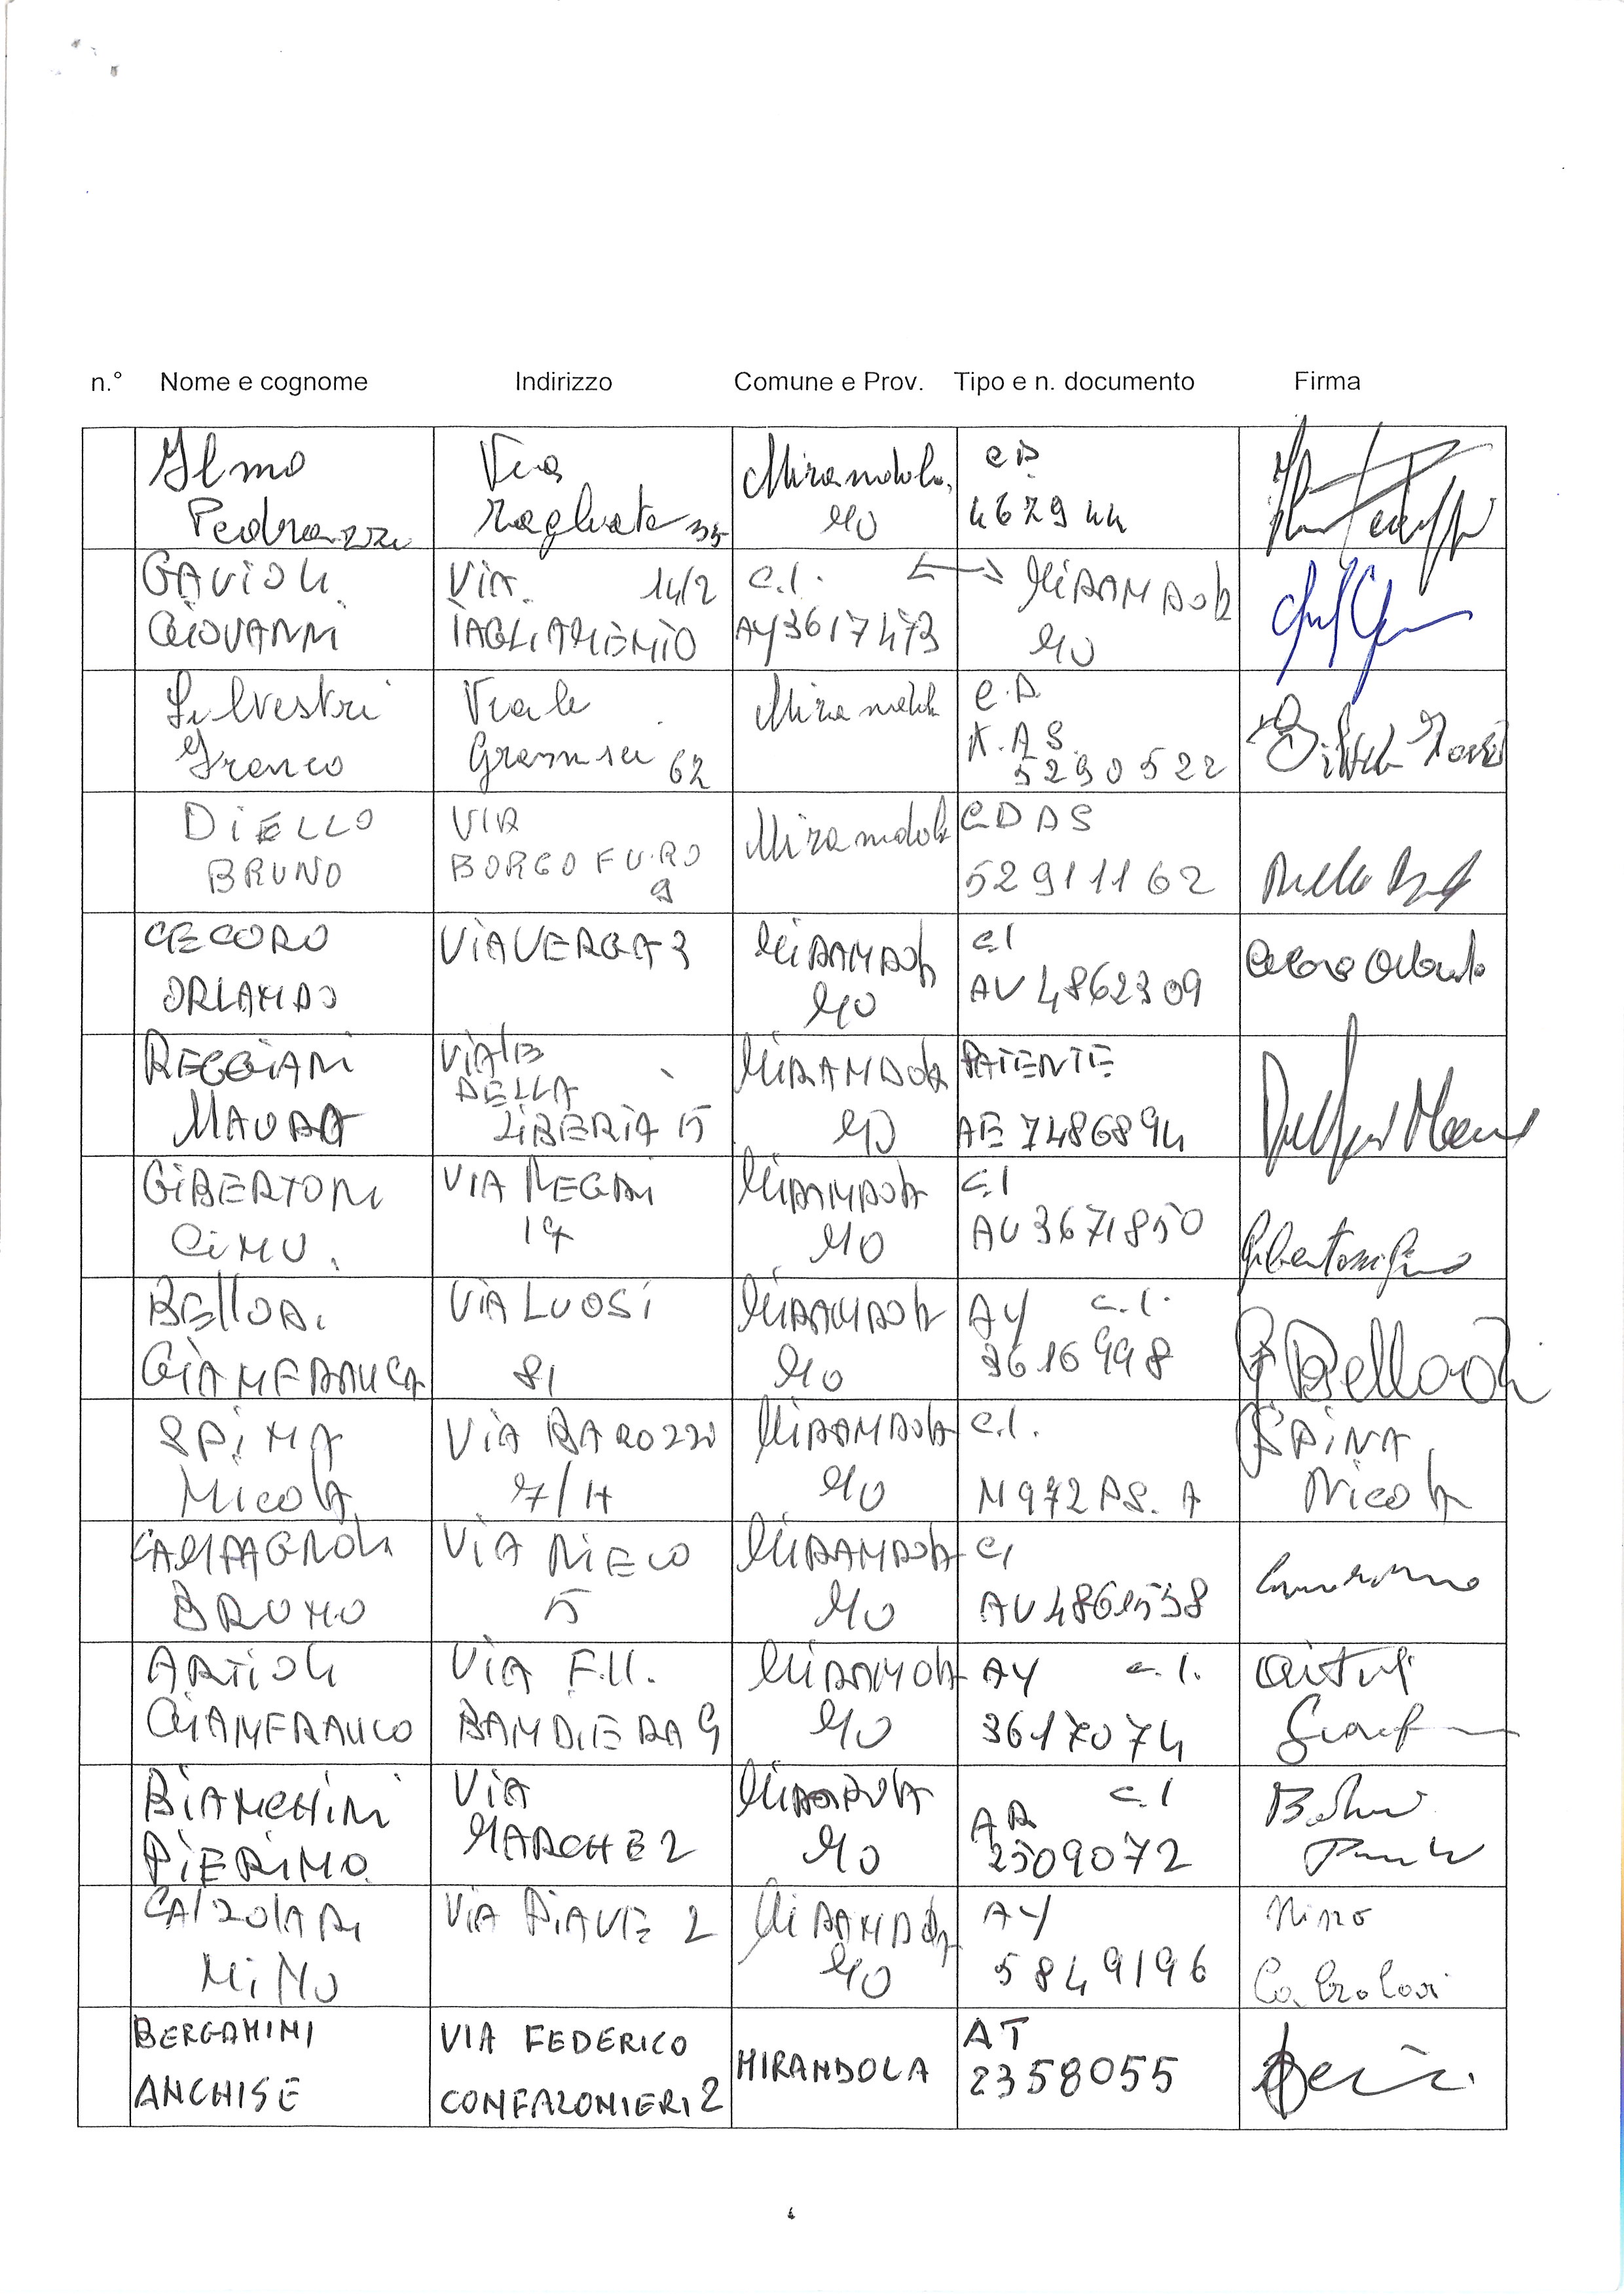 n.° Nome e cognome Indirizzo Comune e Prov. Tipo e n. documento Firma
Ilmo Via Mirandola
Pedrazzi 35 MO 467944
GAVIOLI VIA 14/2 C.I. MIRANDOLA
GIOVANNI TAGLIAMENTO AY3617473 MO
Silvestri Viale Mirandola
Franco Gramsci 62 5290522
DIELLO VIA Mirandola
BRUNO BORGOFURO 52911162
9
CECORO VIA VERGA 3 MIRANDOLA C.I Cecoro Orlando
ORLANDO MO AV 4862309
REGGIANI VIALE MIRANDOLA PATENTE
DELLA
MAURO LIBERTA 15 MO AE 7486894
GIBERTONI VIA MIRANDOLA C.I
GINO 17 MO AU 3671850 Gibertoni Gino
BELLODI VIA LUOSI MIRANDOLA AY C.I.
GIANFRANCA 81 MO 3616998 G Bellodi
SPINA VIA BAROZZI MIRANDOLA C.I. SPINA
NICOLA 7/H MO Nicola
CAMPAGNOLI VIA MIRANDOLA CI
BRUNO 5 MO AU 4861538
ARTIOLI VIA F.lli. MIRANDOLA AY C.I.
GIANFRANCO BANDIERA 9 MO 3617074
BIANCHINI VIA MIRANDOLA C.I
PIERINO MARCHE 2 MO AR 2509072
CALZOLARI VIA PIAVE 2 MIRANDOLA AY Nino
NINO MO 5849196 Calzolari
BERGAMINI VIA FEDERICO MIRANDOLA AT
ANCHISE CONFALONIERI 2 2358055